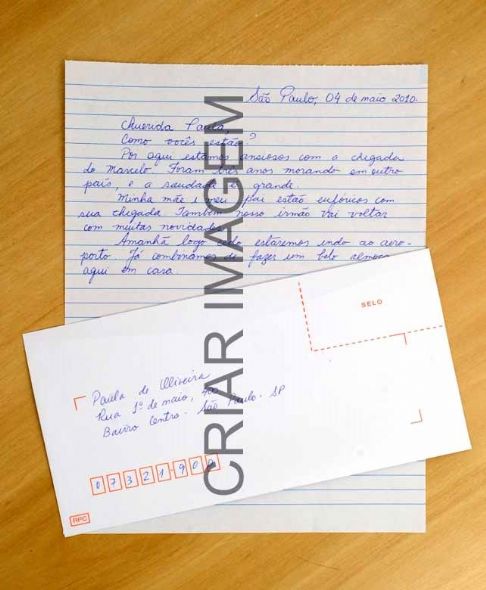 São Paulo, 04 de maio 2010.
Querida Paula,
Como vocês estão?
Por aqui estamos ansiosos com a chegada
do Marcelo. Foram três anos morando em outro
país, e a saudade é grande.
Minha mãe e meu pai estão eufóricos com
sua chegada. Também nosso irmão vai voltar
com muitas novidades.
Amanhã logo cedo estaremos indo ao aero-
porto. Já combinamos de fazer um belo almoço
aqui em casa
SELO
Paula de Oliveira
Rua 1º de maio, 400
Bairro Centro - São Paulo - SP
07321-900
RPC
CRIAR IMAGEM